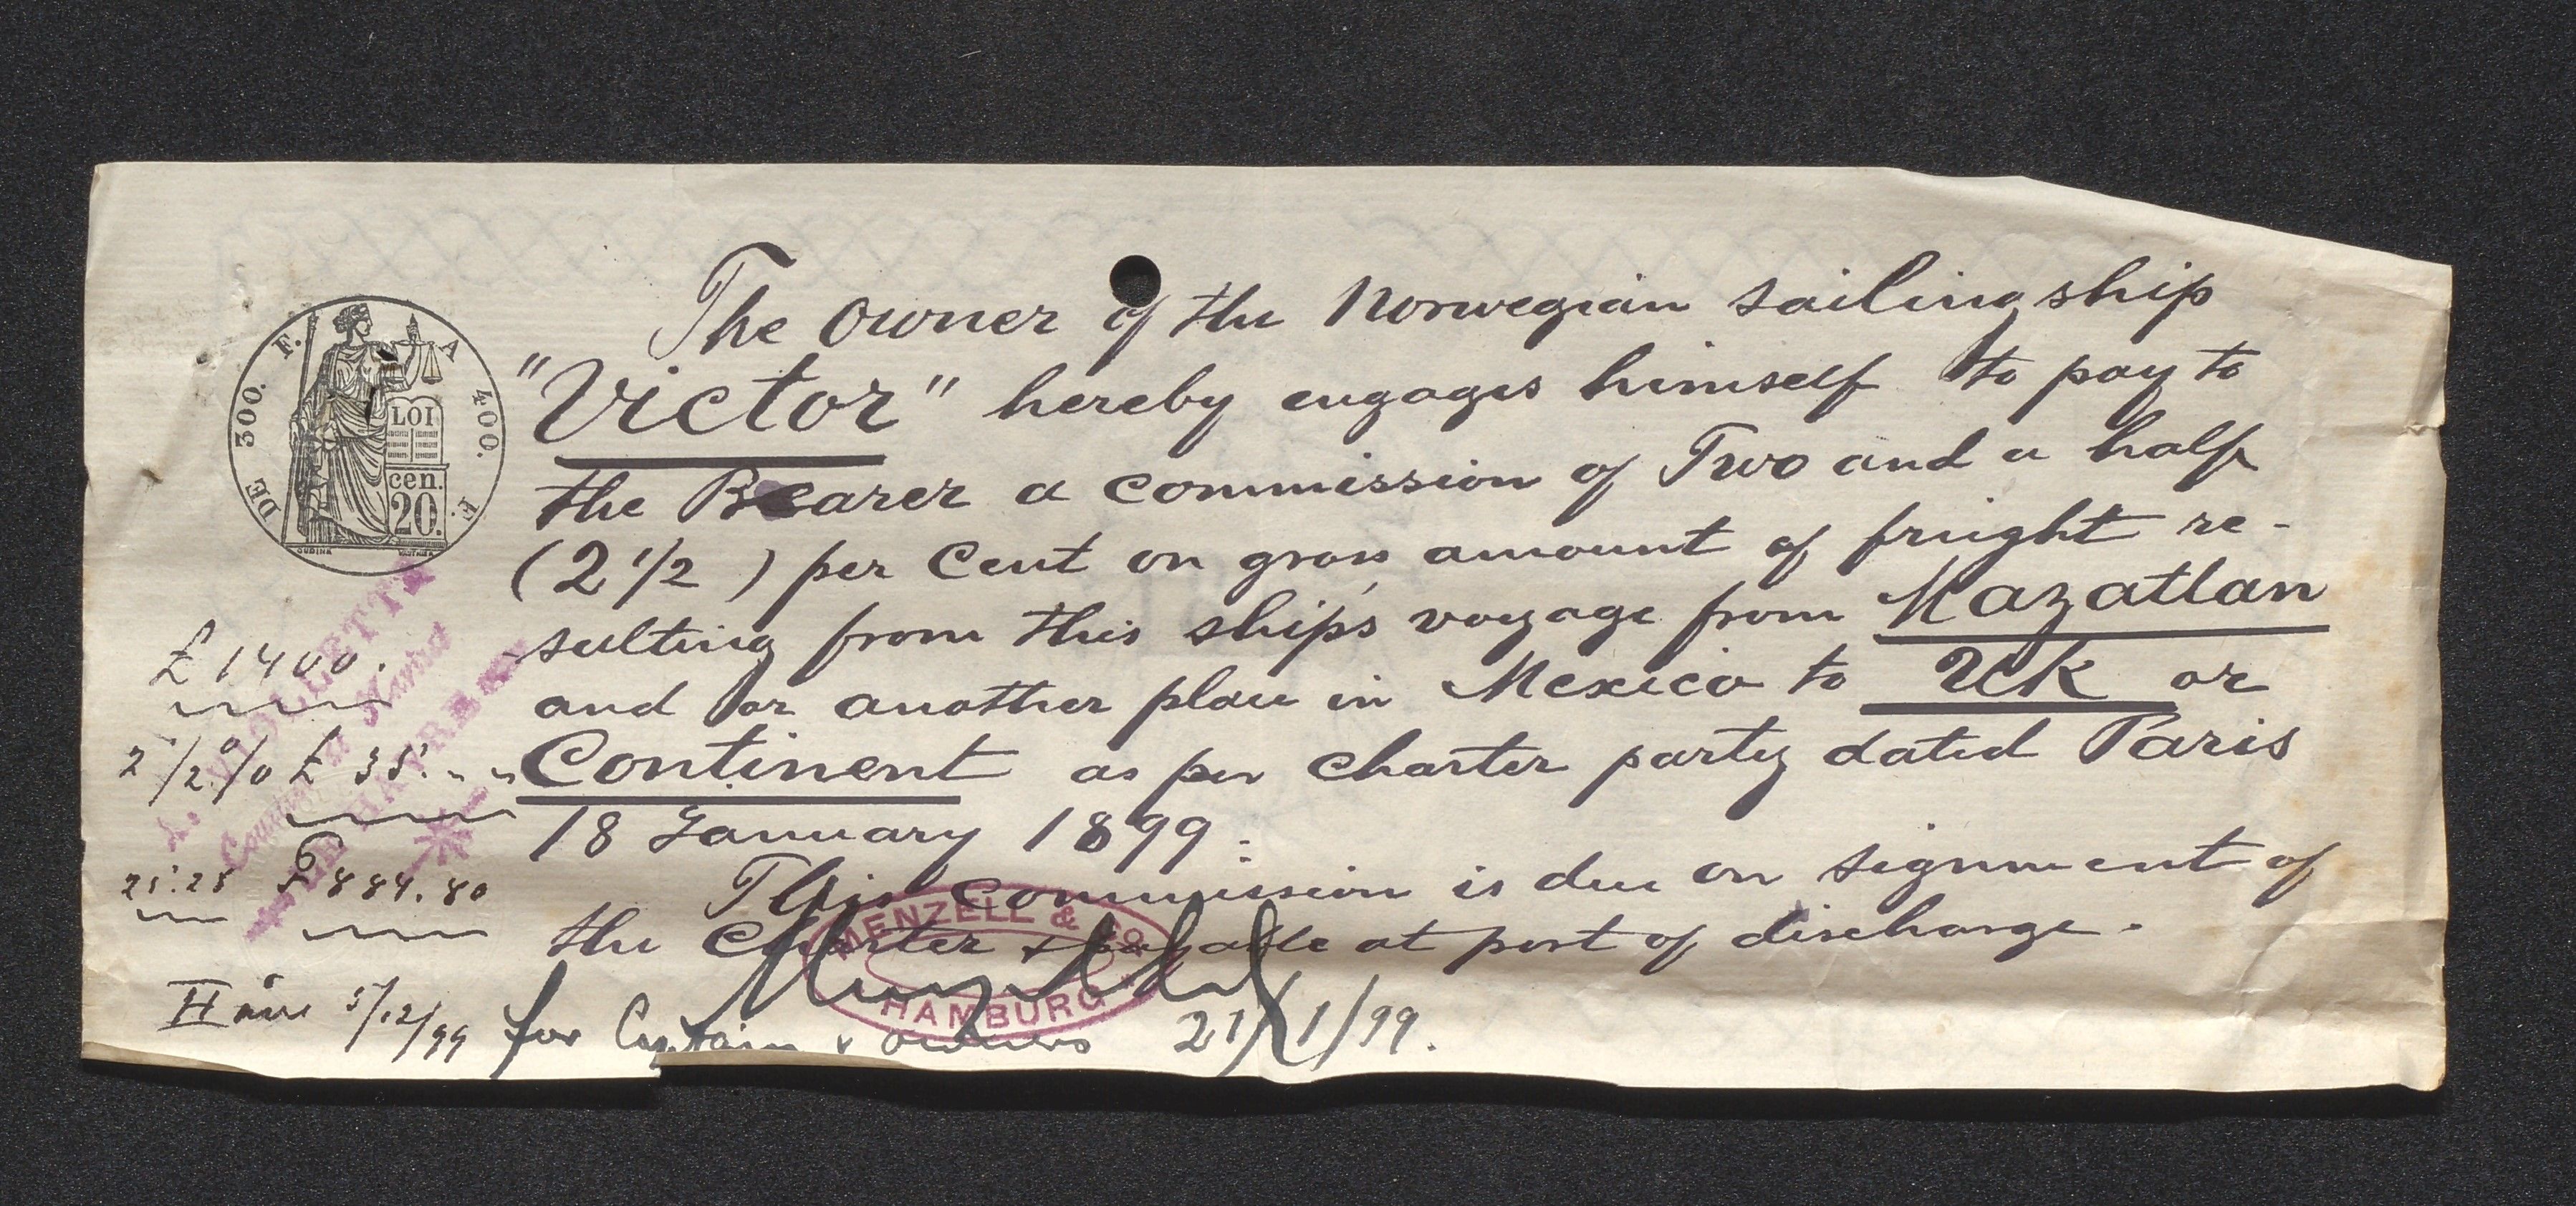 The owner of the Norwegian sailing ship
"Victor" hereby engages himself to pay to
the Bearer a commission of Two and a half
(2 1/2) per Cent on gross amount of freight re-
sulting from this ship's voyage from Mazatlan
and/or another place in Mexico to UK or
Continent as per Charter party dated Paris
18 January 1899.
This Commission is due on signment of
the Charter & payable at port of discharge.
for Captain & owners 21/1/99.
MENZELL & CO
HAMBURG
DE 300. F. A 400. F.
LOI
cen.
20.
OUDINE
£ 1400.
2 1/2 % £ 35. " "
25.28 F 884.80
Havre 5/12/99
L. VIOLLETTE
Courtier Marité
HAVRE